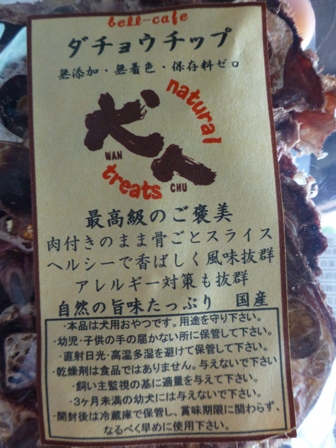 bell-cafe
ダチョウチップ
無添加・無着色・保存料ゼロ
natural
WAN
CHU
treats
最高級のご褒美
肉付きのまま骨ごとスライス
ヘルシーで香ばしく風味抜群
アレルギー対策も抜群
自然の旨味たっぷり 国産
・本品は犬用おやつです。用途を守り下さい。
・幼児・子供の手の届かない所に保管して下さい。
・直射日光・高温多湿を避けて保管して下さい。
・乾燥剤は食品ではありません。与えないで下さい
・飼い主監視の基に適量を与えて下さい。
・3ヶ月未満の幼犬には与えないで下さい。
・開封後は冷蔵庫で保管し、賞味期限に関わらず、
なるべく早めに使用下さい。